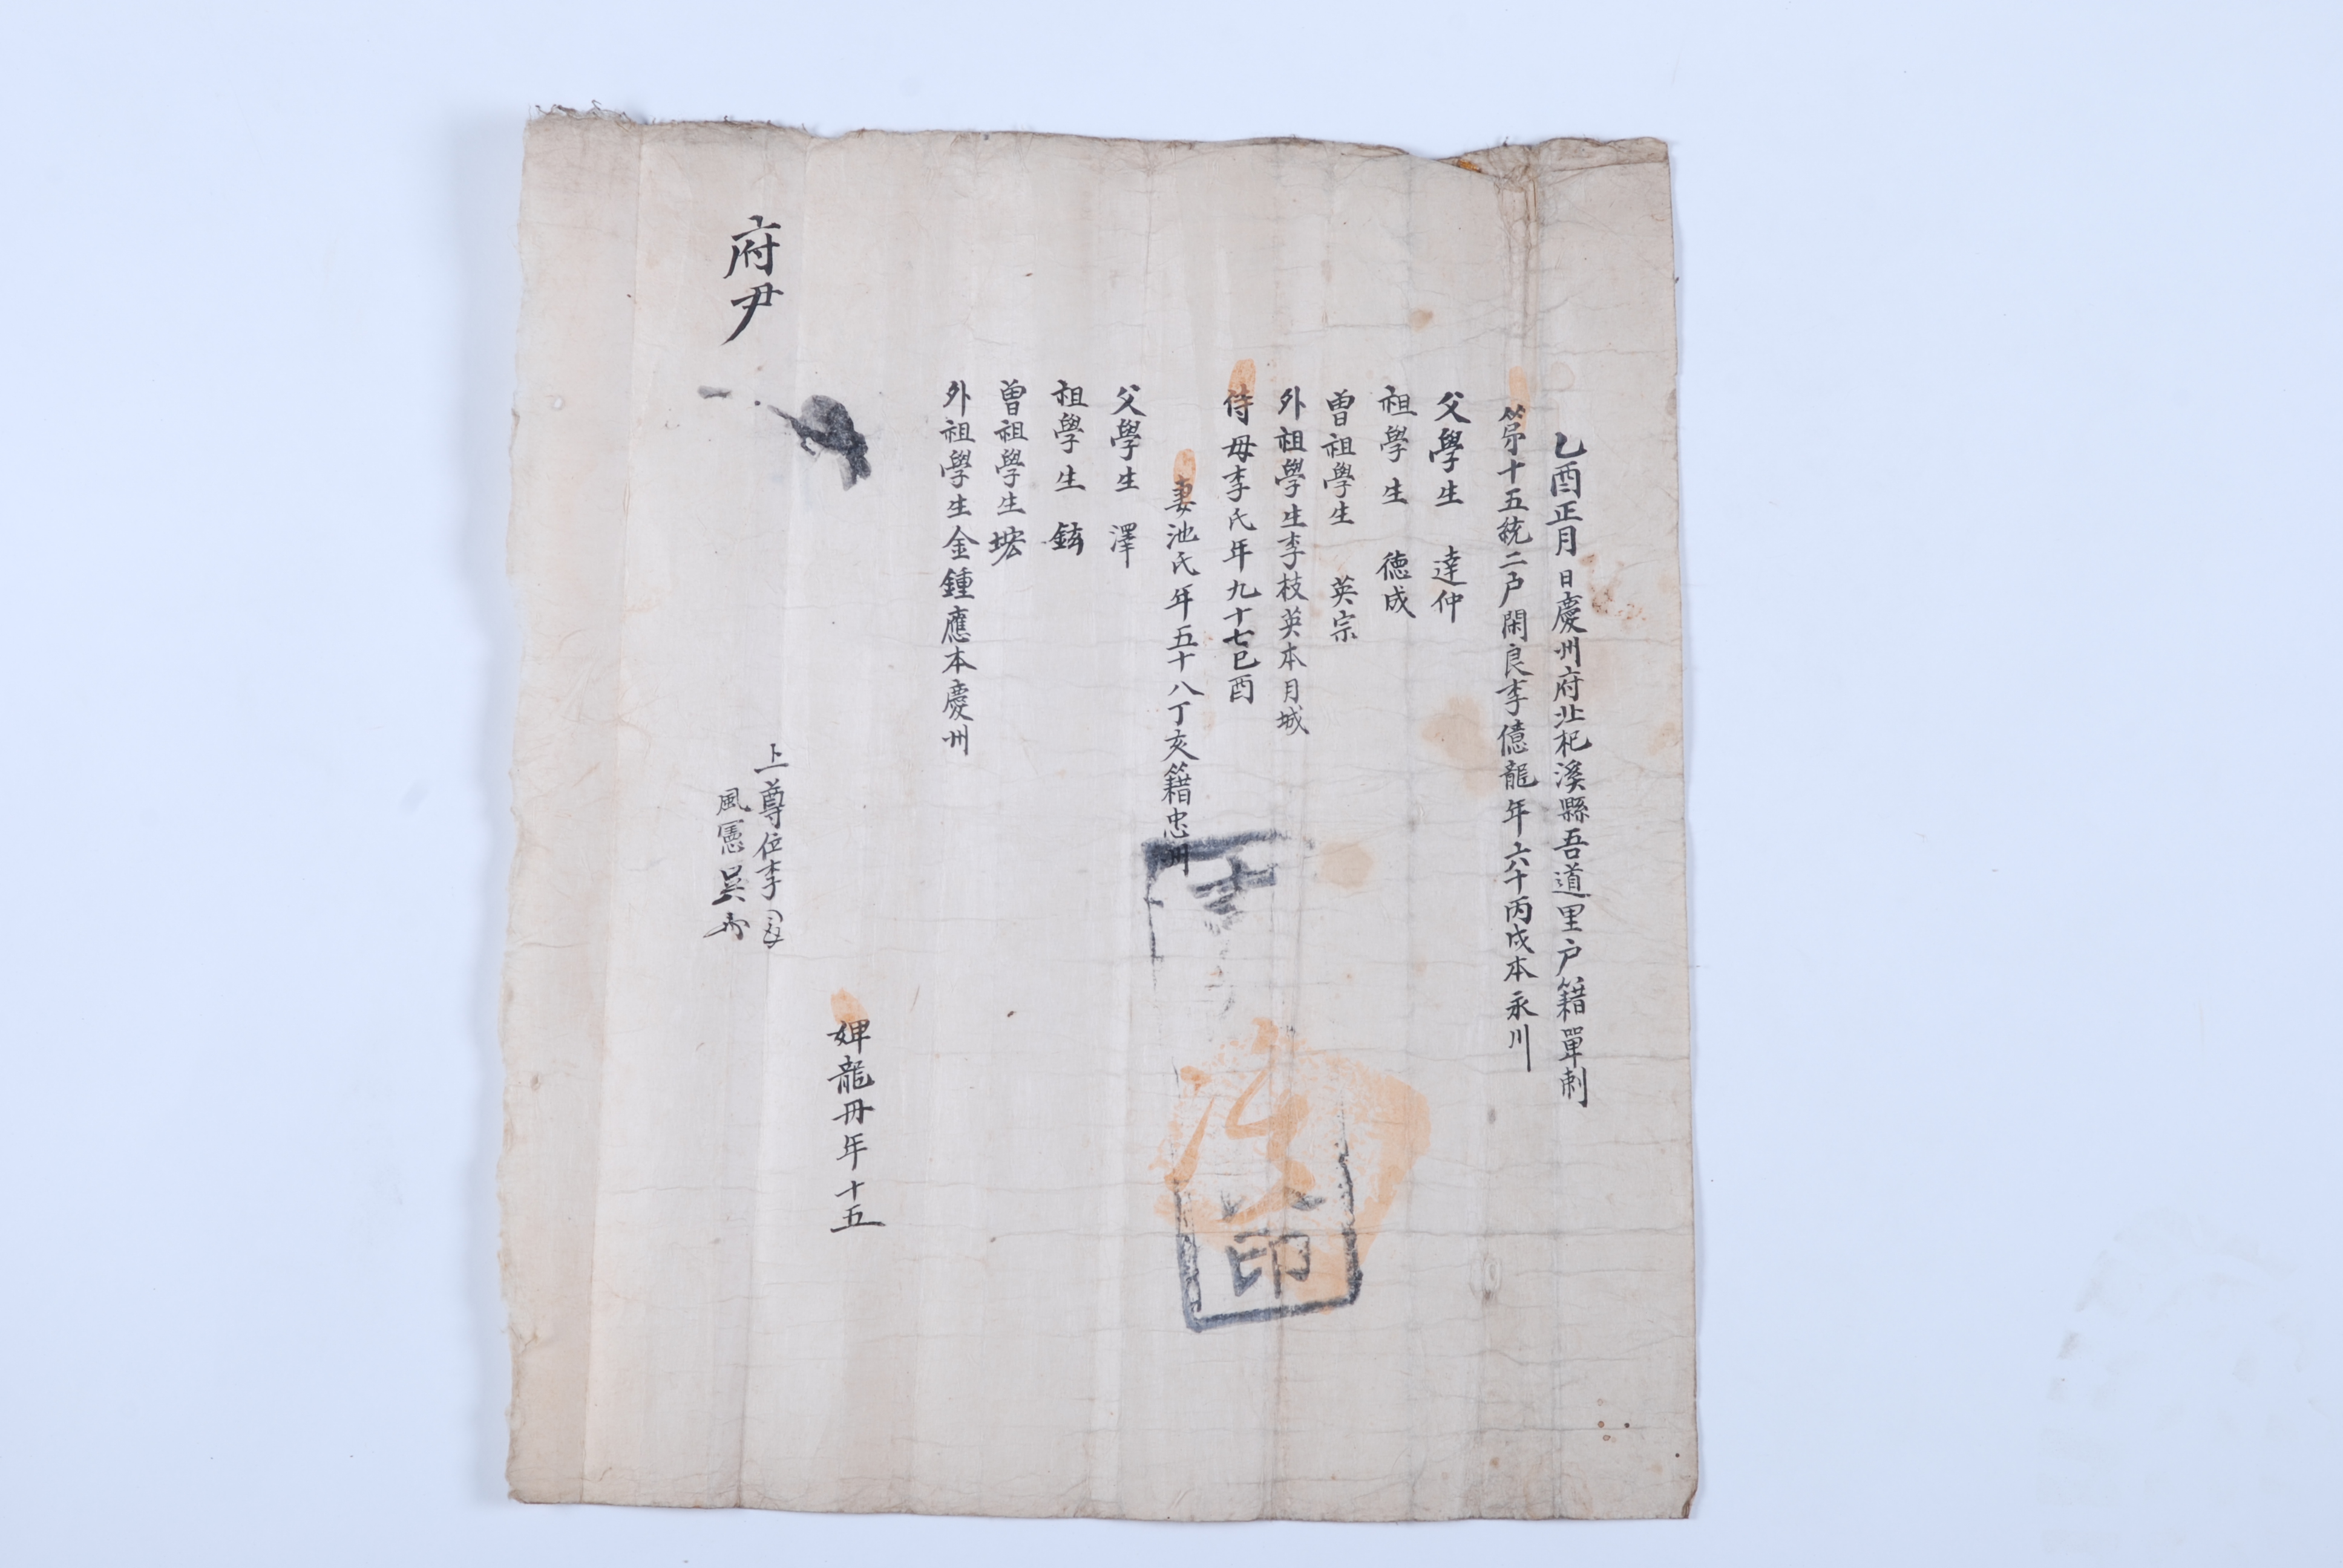 乙酉正月 日慶州府北杞溪縣吾道里户籍單刺
第十五統二户閑良李億龍年六十丙戌本永川
父學生 達仲
祖學生 德成
曽祖學生 英宗
外祖學生李枝英本月城
侍母李氏年九十七己酉
妻池氏年五十八丁亥籍忠州
父學生 澤
祖學生 鉉
曽祖學生 𡋟
外祖學生金鍾應本慶州
婢龍冊年十五
上尊位李
風憲吳
府尹
印